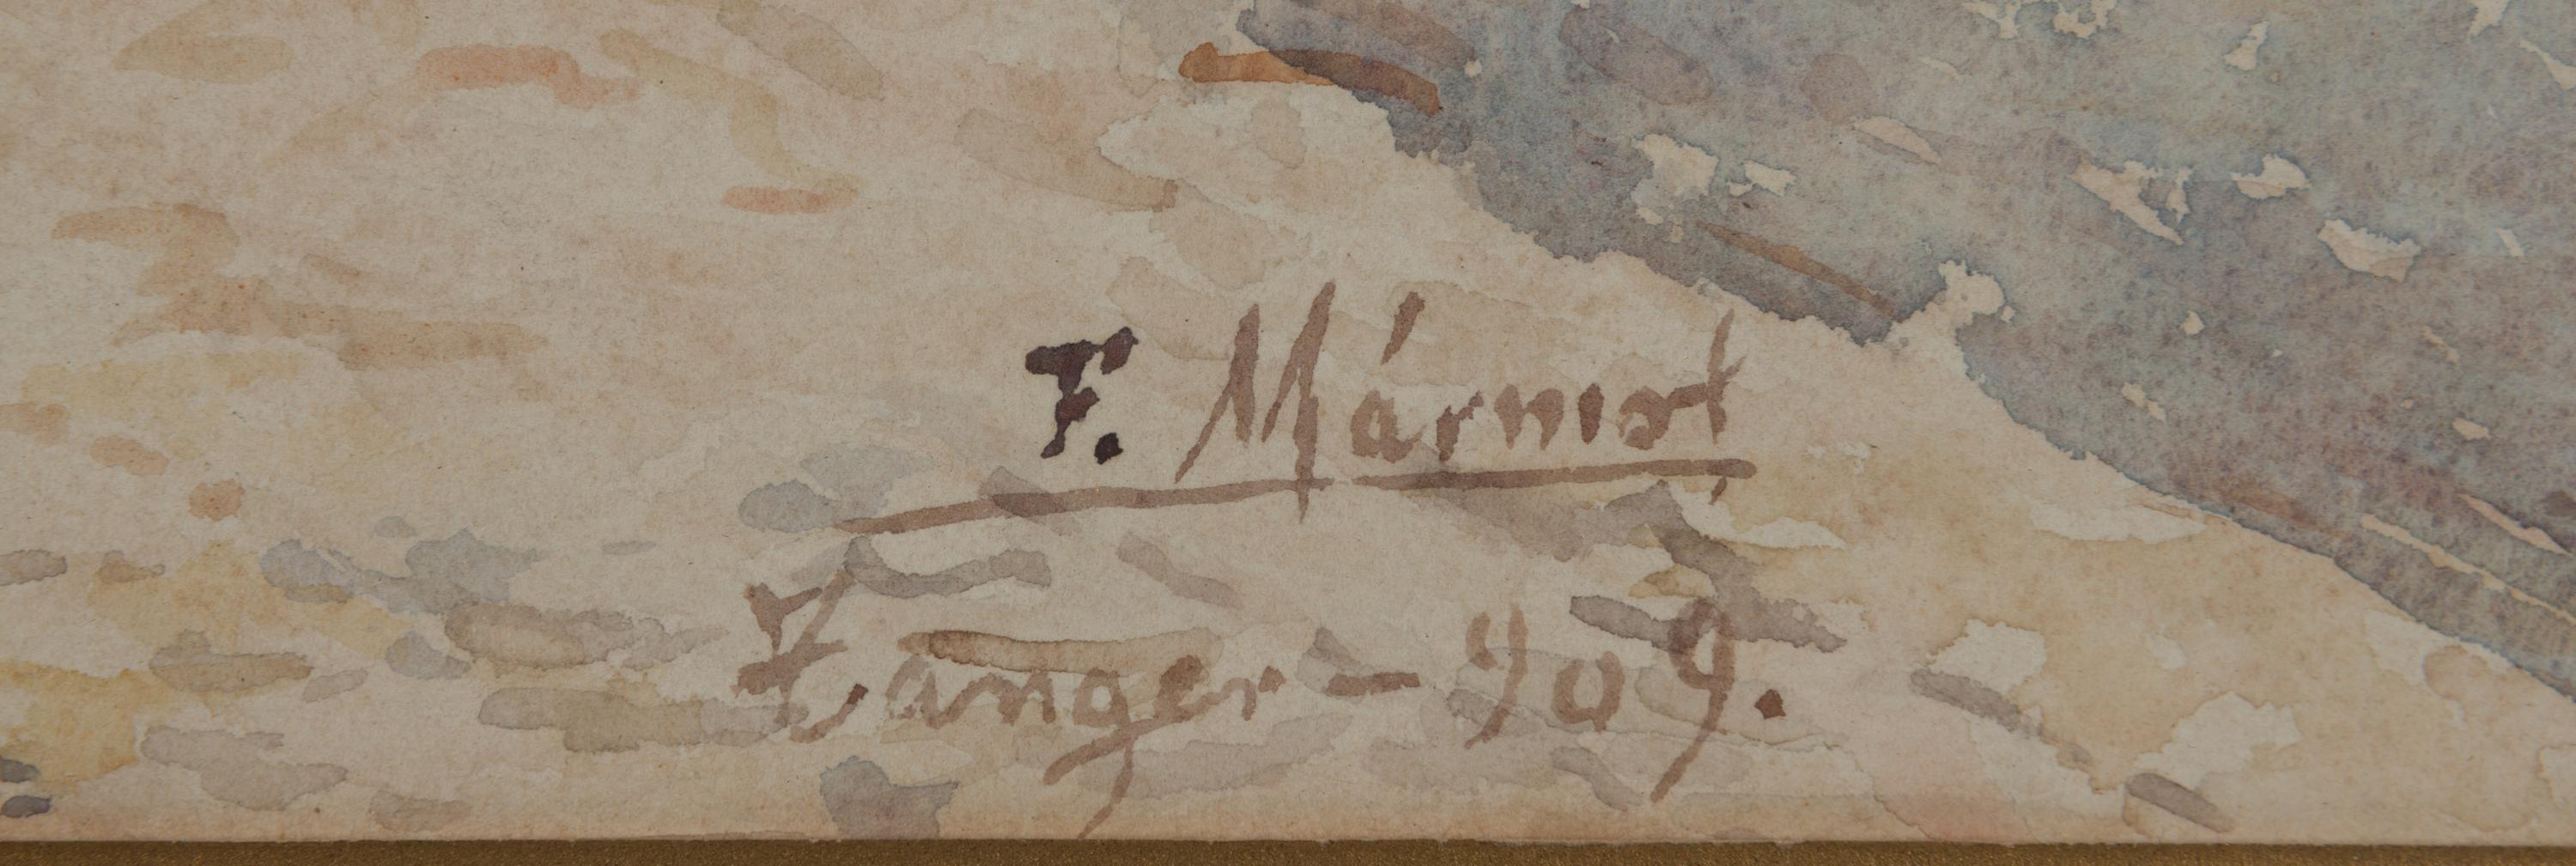 F. Mármol
Tanger - 909.